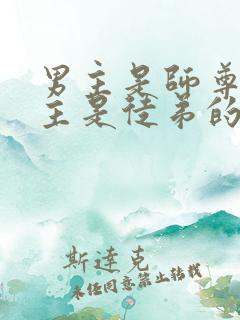 男主是師尊
主是徒弟的
斯達克
未經同意禁止轉載